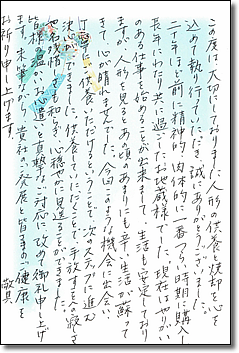 この度は、大切にしておりました人形の供養と焼却を心を
込めて執り行っていただき、誠にありがとうございました。
二十年ほど前に精神的、肉体的に一番つらい時期に購入し
長年にわたり共に過ごしたお地蔵様でした。現在はやりがい
のある仕事を始めることが出来まして、生活も安定しており
ますが、人形を見るとあの頃のあまりにも辛い生活が蘇って
きて心が晴れませんでした。今回このような機会に出会い
丁寧に供養いただけるということで、次のステップに進む
決心ができました。供養していただくことで、手放すときの寂しさ
や名残惜しさも和らぎ、心穏やかに見送ることができました。
皆様の温かいお心遣いと真摯なご対応に、改めて御礼申し上げ
ます。末筆ながら、貴社のご発展と皆車のご健康を
お祈り申し上げます。
敬具